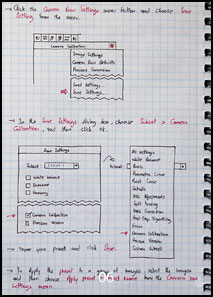 → Click the Camera Raw Settings menu button and choose Save
Settings from the menu.
Camera Calibration
Image Settings
Camera Raw Defaults
Previous Conversion
Load Settings...
Save Settings...
→ In the Save Settings dialog box, choose Subset > Camera
Calibration, and then click
Save Settings
Subset
White Balance
Camera Calibration
Process Version
Subset
All Settings
White Balance
Basic
Parametric Curve
Point Curve
Details
HSL Adjustments
Split Toning
Lens Correction
Camera Calibration
Process Version
→ Name your preset and click Save.
→ To Apply the preset to a group of images, select the images
and then choose Apply preset from the Camera Raw